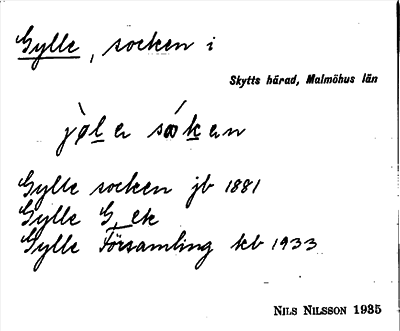 Gylle, socken i
Skytts härad, Malmöhus län
Gylle socken jb 1881
Gylle G, ek
Gylle Församling kb 1933
NILS NILSSON 1935